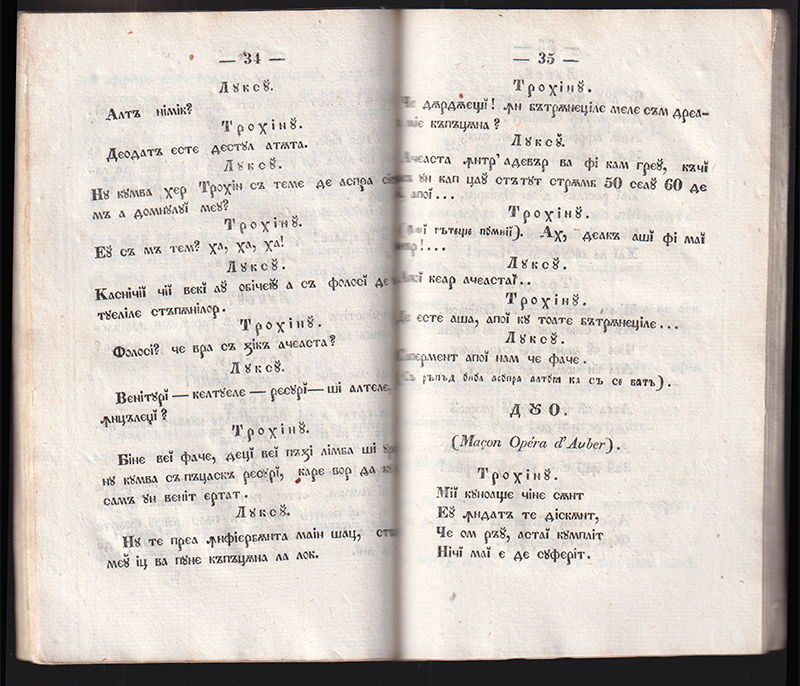 — 34 —
Лꙋксꙋ̆.
Алтъ німік?
Трохінꙋ̆.
Деодатъ есте дестꙋл атѫта.
Лꙋксꙋ̆.
Нꙋ кꙋмва хер Трохін съ теме де аспра
мъ а домнꙋлꙋі меꙋ̆?
Трохінꙋ̆.
Еꙋ̆ съ мъ тем? ха, ха, ха!
Лꙋксꙋ̆.
Каснічії чії векі аꙋ̆ обічеіꙋ̆ а съ фолосі де
тꙋеліле стъпѫнілор.
Трохінꙋ̆.
Фолосі? че вра съ зік ачеаста?
Лꙋксꙋ̆.
Венітꙋрї — келтꙋеле — ресꙋрї — ші алтеле.
ꙟнцълеџї?
Трохінꙋ̆.
Біне веї фаче, децї веї пъзі лімба ші
нꙋ кꙋмва съ пъцаск ресꙋрї, каре вор да
самъ ꙋн веніт ертат.
Лꙋксꙋ̆.
Нꙋ те преа ꙟнфіербѫнта маін шац,
меꙋ̆ іц ва пꙋне къпъцѫна ла лок.
— 35 —
Трохінꙋ̆.
дѫрдѫещї! ꙟн бътрѫнеціле меле съм дреа-
къпъцѫна?
Лꙋксꙋ̆.
Ачеаста ꙟнтр' адевър ва фі кам греꙋ̆, къчї
ꙋн кап цаꙋ̆ стътꙋт стрѫмб 50 сеаꙋ̆ 60 де
апої...
Трохінꙋ̆.
гътеще пꙋмнії). Ах, деак аші фі маї
!...
Лꙋксꙋ̆.
Апої кеар ачеастаї..
Трохінꙋ̆.
Де есте аша, апої кꙋ тоате бътрѫнеціле...
Лꙋксꙋ̆.
Сапермент апої нам че фаче.
(Съ ръпъд ꙋнꙋл асꙋпра алтꙋіа ка съ се батъ).
ДꙊО.
(Maçon Opéra d'Auber).
Трохінꙋ̆.
Мії кꙋноаще чіне сѫнт
Еꙋ̆ ꙟндатъ те діскѫнт,
Че ом ръꙋ̆, астаї кꙋмпліт
Нічї маї е де сꙋферіт.